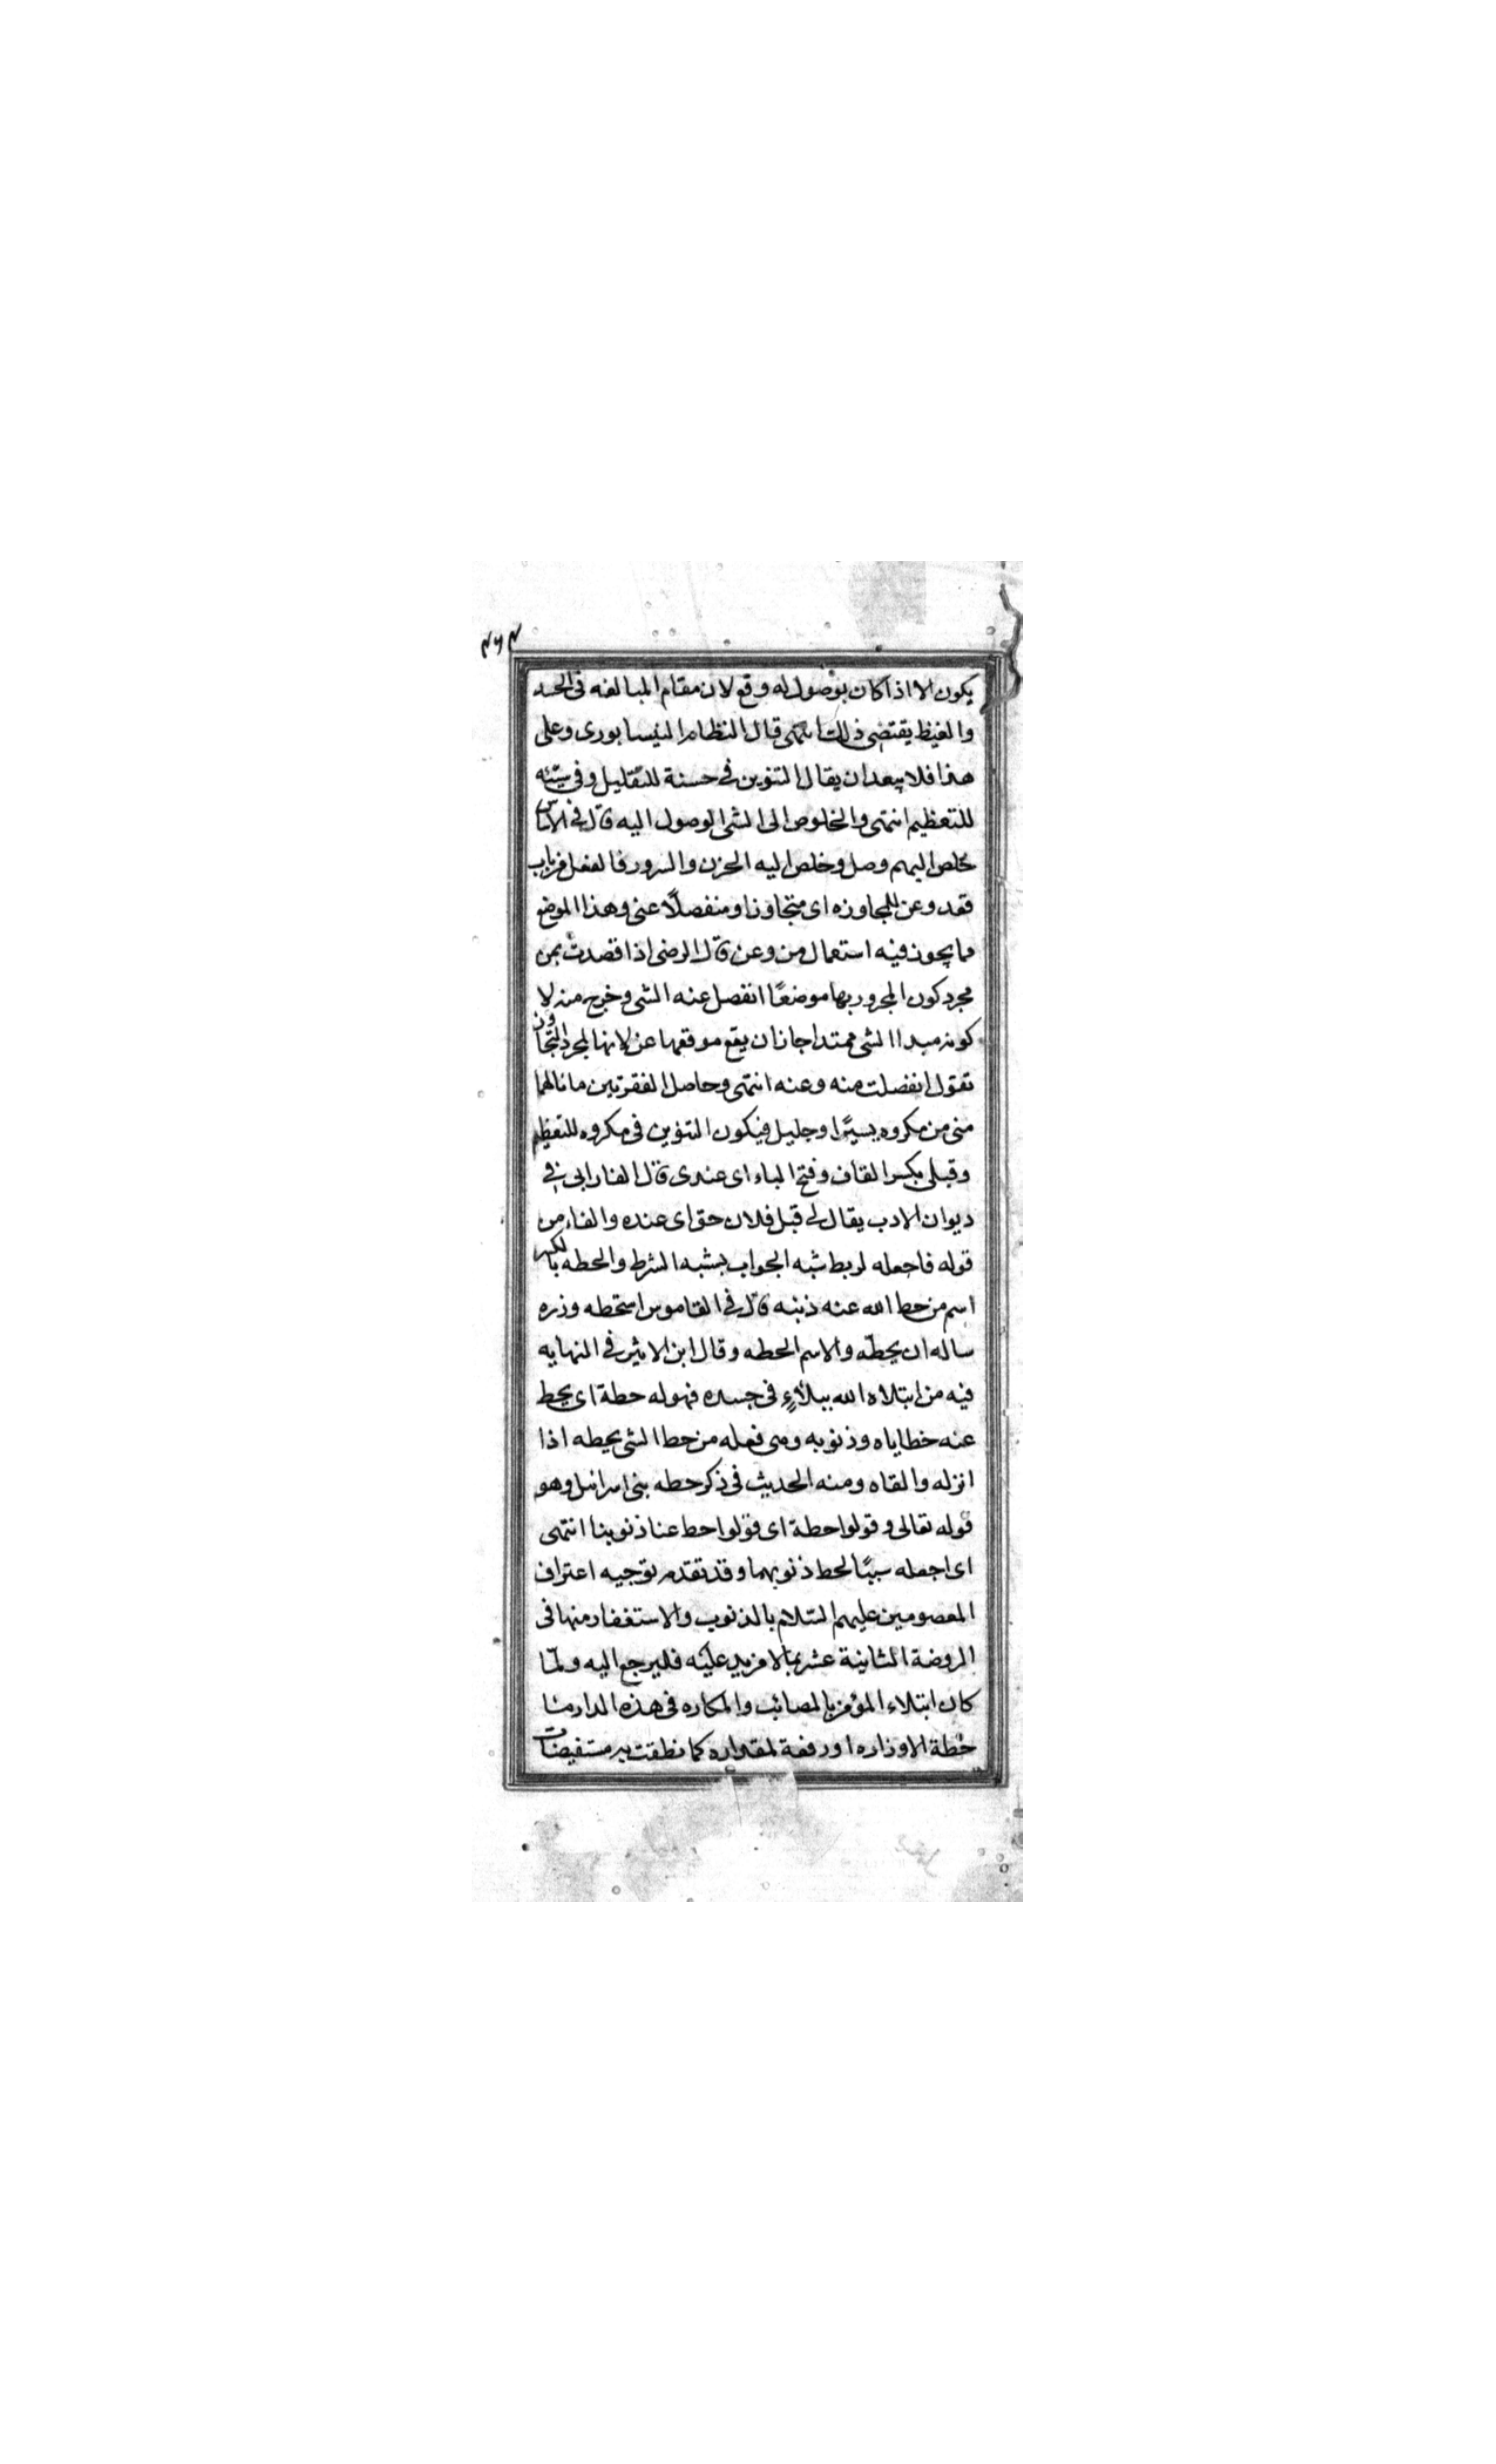 يكون الا اذا كان بوصول له وقع لان مقام المبالغه فى الحسد
والغيظ يقتضى ذلك انتهى قال النظام النيسابورى وعلى
هذا فلا يبعد ان يقال التنوين فى حسنة للتقليل وفى سيئه
للتعظيم انتهى والخلوص الى الشى الوصول اليه قال فى الاساس
خلص اليهم وصل وخلص اليه الحزن والسرور فالفعل من باب
قعد وعن للمجاوزه اى متجاوزا ومنفصلاً عنى وهذا الموضع
مما يجوز فيه استعمال من وعن قال الرضى اذا قصدت بمن
مجرد كون المجرور بها موضعًا انفصل عنه الشى وخرج منه لا
كونه مبداا لشى ممتد اجاز ان يقع موقعها عن لانها لمجرد التجاوز
تقول انفصلت منه وعنه انتهى وحاصل الفقرتين ما نالهما
منى من مكروه يسيرًا وجليل فيكون التنوين فى مكروه للتعظيم
وقبلى بكسر القاف وفتح الباء اى عندى قال الفارابى فى
ديوان الادب يقال لى قبل فلان حق اى عنده والفاء من
قوله فاجعله لربط شبه الجواب بشبه الشرط والحطه بالكسر
اسم من حط الله عنه ذنبه قال فى القاموس استحطه وزره
ساله ان يحطّه والاسم الحطه وقال ابن الاثير فى النهايه
فيه من ابتلاه الله ببلاءٍ فى جسده فهو له حطة اى يحط
عنه خطاياه وذنوبه وهى فعله من حط الشى يحطه اذا
انزله والقاه ومنه الحديث فى ذكر حطه بنى اسرائيل وهو
قوله تعالى وقولوا حطة اى قولوا حط عنا ذنوبنا انتهى
اى اجعله سببًا لحط ذنوبهما وقد تقدم توجيه اعتراف
المعصومين عليهم السّلام بالذنوب والاستغفار منها فى
الروضة الثانية عشر بما لا مزيد عليه فليرجع اليه ولمّا
كان ابتلاء المؤمن بالمصائب والمكاره فى هذه الدار منا
حطة الاوزاره او رفعة لمقداره كما نطقت به مستفيضات